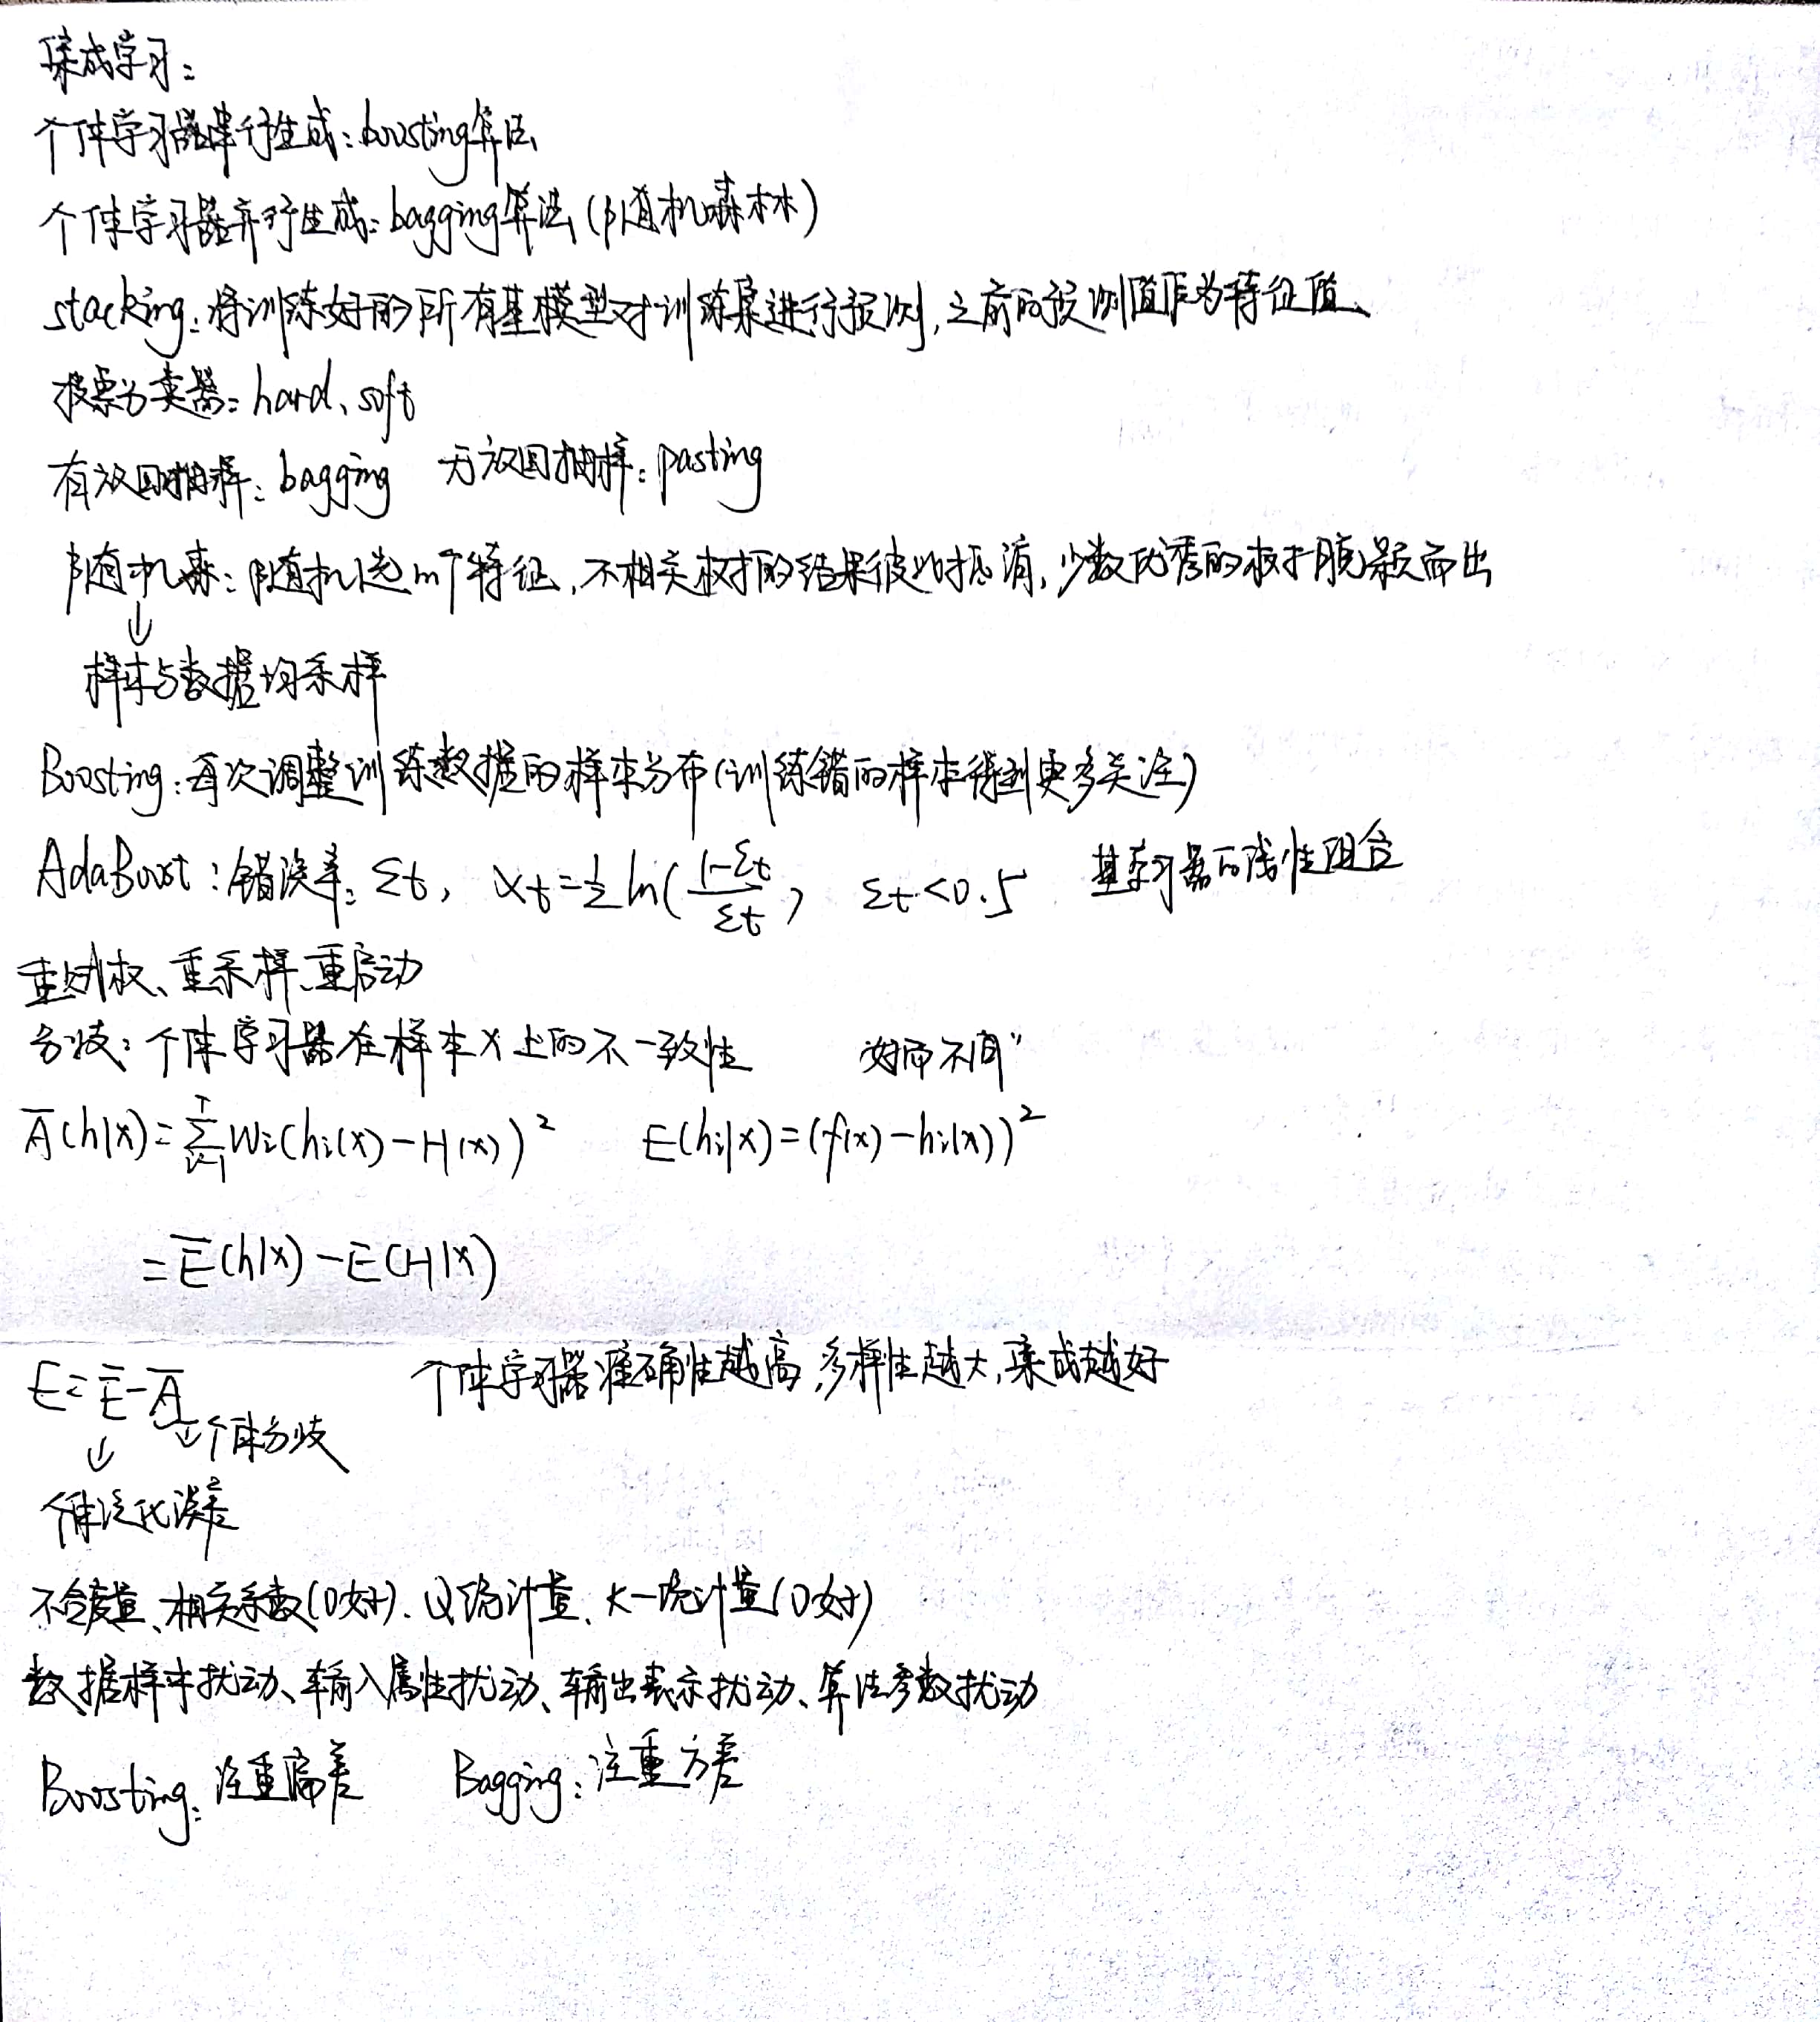 集成学习：
个体学习器串行生成：boosting算法
个体学习器并行生成：bagging算法(随机森林)
stacking：将训练好的所有基模型对训练集进行预测，之前的预测值作为特征值、
投票分类器：hard、soft
有放回抽样：bagging 无放回抽样：pasting
随机森：随机选m个特征，不相关树的结果彼此抵消，少数优秀的树脱颖而出
↓
样本与数据均采样
Boosting：每次调整训练数据的样本分布(训练错的样本得到更多关注)
AdaBoost：错误率：Σt，αt=½ln(\frac{1-Σt}{Σt})，Σt<0.5 基学习器的线性组合
重赋权、重采样、重启动
分歧：个体学习器在样本X上的不一致性 "好而不同"
Ā(h|x)=\sum_{i=1}^{T}Wi(hi(x)-H(x))² E(hi|x)=(f(x)-hi(x))²
=Ē(h|x)-E(H|x)
E=Ē-Ā 个体学习器准确性越高，多样性越大，集成越好
↓ ↓个体分歧
个体泛化误差
不合度量、相关系数(0好)、Q统计量、K-统计量(0好)
数据样本扰动、输入属性扰动、输出表示扰动、算法参数扰动
Boosting：注重偏差 Bagging：注重方差